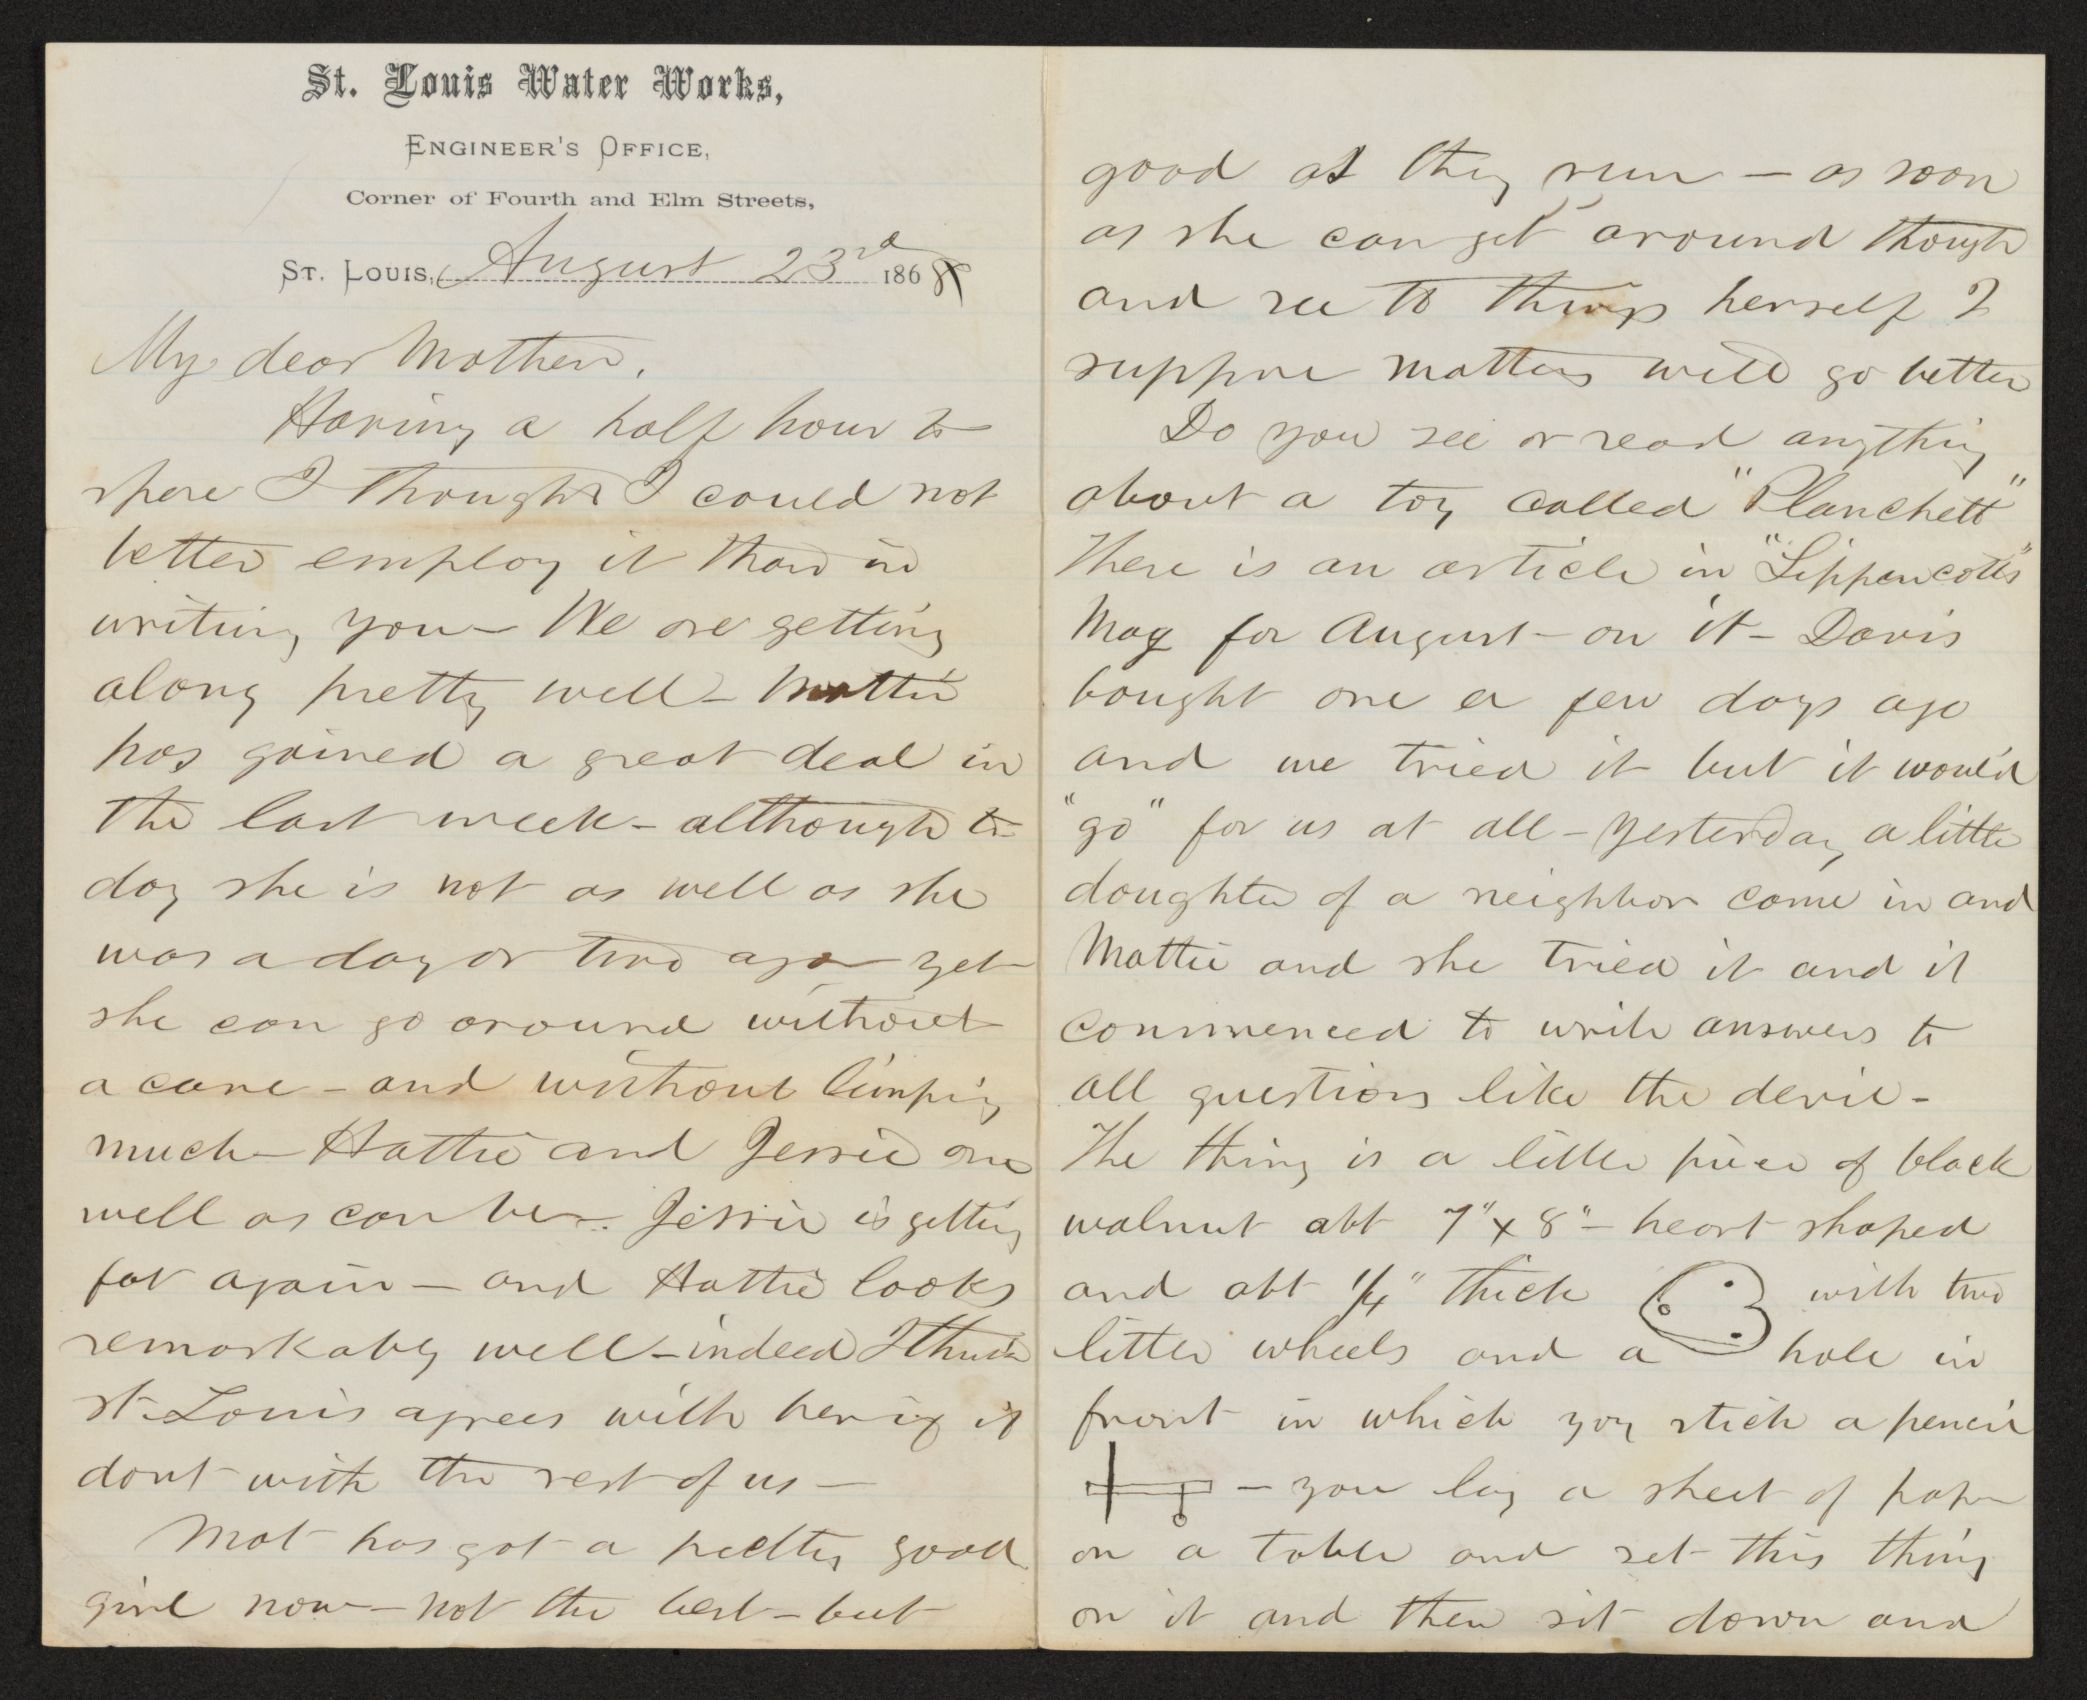 St. Louis Water Works,
ENGINEER'S OFFICE,
Corner of Fourth and Elm Streets,
ST. LOUIS, August 23rd 1868
My dear Mother,
Having a half hour to
spare I thought I could not
better employ it than in
writing you — We are getting
along pretty well — Mattie
has gained a great deal in
the last week — although to
day she is not as well as she
was a day or two ago — yet
she can go around without
a cane — and without limping
much — Hattie and Jessie are
well as can be — Jessie is getting
fat again — and Hattie looks
remarkably well — indeed I think
St. Louis agrees with her if it
dont with the rest of us —
Mat has got a pretty good
girl now — not the best — but
good as they run — as soon
as she can get around though
and see to things herself I
suppose matters will go better
Do you see or read anything
about a toy called "Planchett"
There is an article in "Lippencotts"
Mag for August — on it — Davis
bought one a few days ago
and we tried it but it would
"go" for us at all — yesterday a little
daughter of a neighbor came in and
Mattie and she tried it and it
commenced to write answers to
all questions like the devil —
The thing is a little piece of black
walnut abt 7" x 8" — heart shaped
and abt 1/4" thick with two
little wheels and a hole in
front in which you stick a pencil
— you lay a sheet of paper
on a table and set this thing
on it and then sit down and